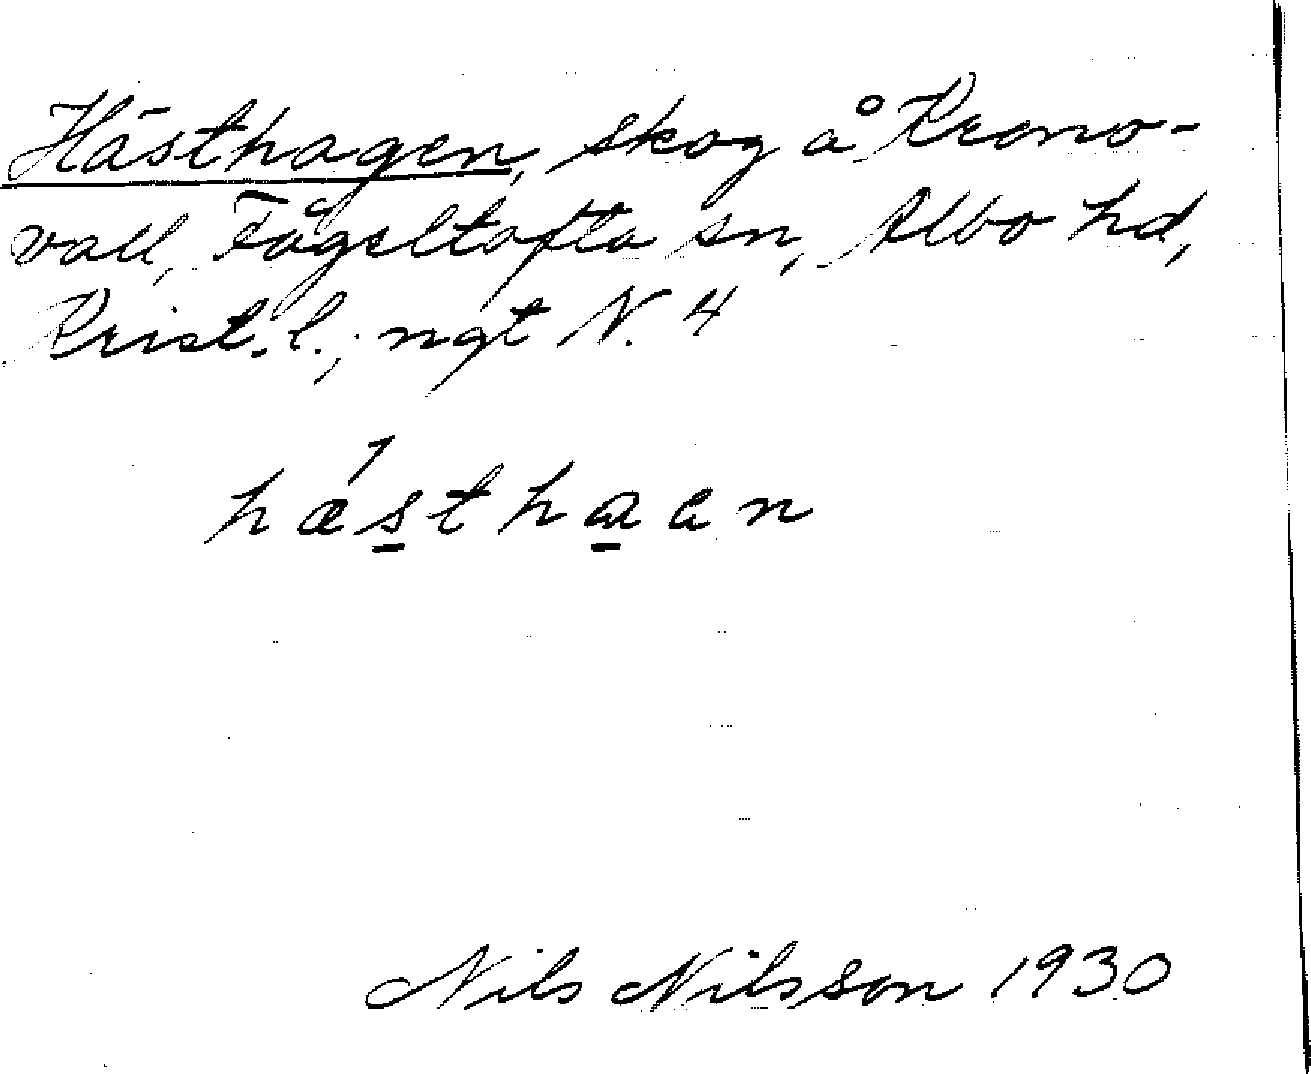 Hästhagen, skog å Krono-
vall, Fågeltofta sn, Albo hd,
Krist. l.; ngt N. 4
hæ´sthaan
Nils Nilsson 1930